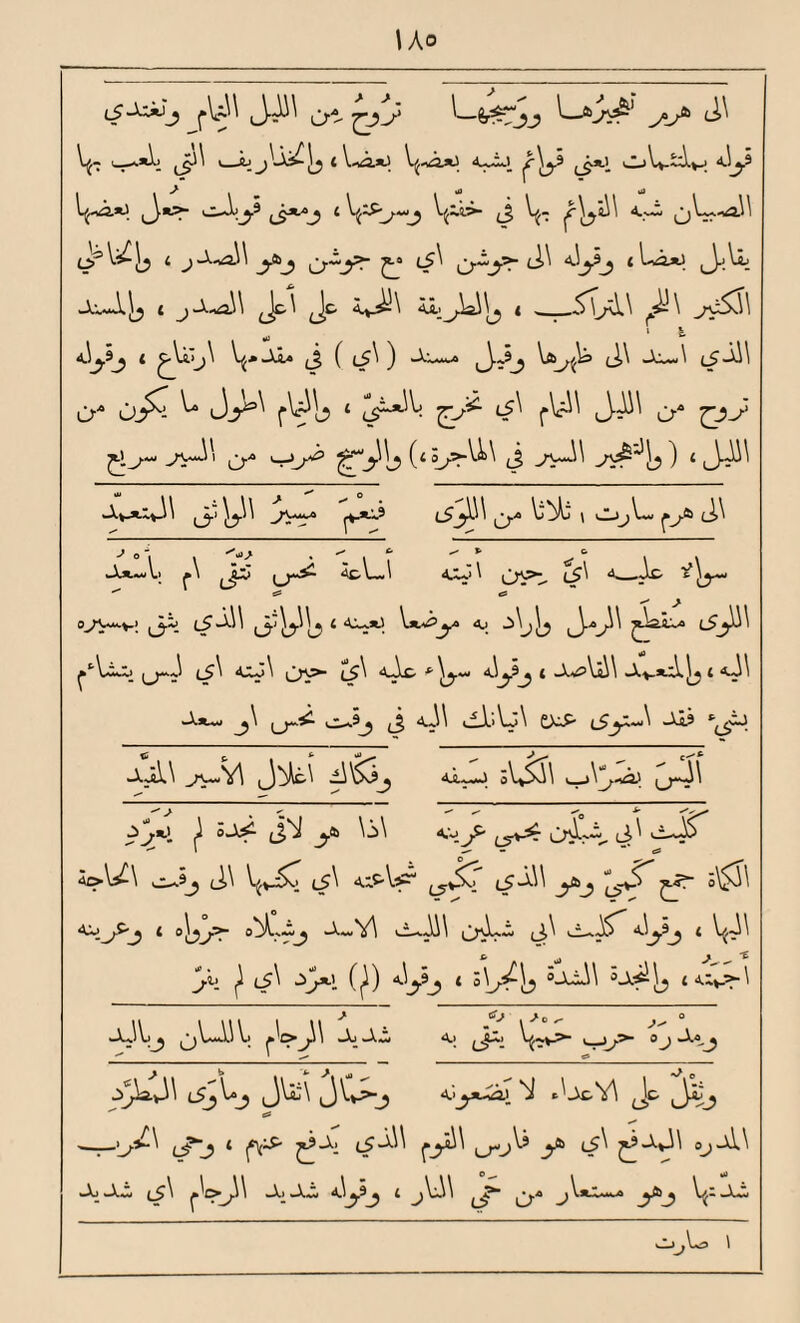 ١٨٥
الى هرم تهجيرها ووسيجها تروّح من الليل التمام وتغتدى
قوله بملتئمات يعنى قوائم يشبه بعضها بعضا ، والخذاريف التى يلعب بها
الصبيان شبه القوائم بها فى خفتها وسرعتها ، ومعنى قوبلت جعل بعضها
يقابل بعضا ، وقوله الى جوشن اى مع جوشن وهو الصدر ، والخاظى
الكثير اللحم المتراكب ، والطريقة اللحمة على اعلى الصدر ، والمسند
الذى اسند الى ظهرها وقيل مسند (اى) فى مقدمها ارتفاع ، وقوله
تروح من الليل التمام اى تخرج بالعشى ، والتمام اطول ما يكون من
الليل ، (والتهجير السير فى الهاجرة ،) والوسيج ضرب من السير سريع
الى هرم سارت ١ ثلاثا من اللوى فنعم مسير الواثق المتعمد
سواء عليه اى حين اتيته اساعة نحس تتقى ام باسعد
اللوى منقطع الرمل واراد به موضعا بعينه ، والواثق الذى يثق بمسيره
اليه ، والمتعمد القاصد ، وقوله سواء عليه اى حين اتيته اى ليس يتشاءم
بشىء فقد استوى عنده اتيانك اليه فى وقت نحس او سعد
اليس بضراب الكماة بسيفه وفكاك اغلال الاسير المقيد
كليث ابى شبلين يحمى عرينه اذا هو لاقى نجدة لم يعرد
الكماة جمع كمى وهو الذى يكمى شجاعته اى يكتمها الى وقت الحاجة
اليها ، وقوله كليث ابى شبلين الليث الاسد وشبلاه جرواه ، وعرينه
اجمته ، والنجدة الشدة والجراة ، وقوله (لم) يعرد اى لم يفر
ومدره حرب حميها يتقى به شديد الرجام باللسان وباليد
وثقل على الاعداء لا يضعونه وحمال اثقال وماوى المطرد
المدره المدفع اى هو فارس القوم الذى يدفع عنهم ، وحمى الحرب
شدتها وهو مستعار من حمى النار ، وقوله شديد الرجام اى شديد
١ صارت